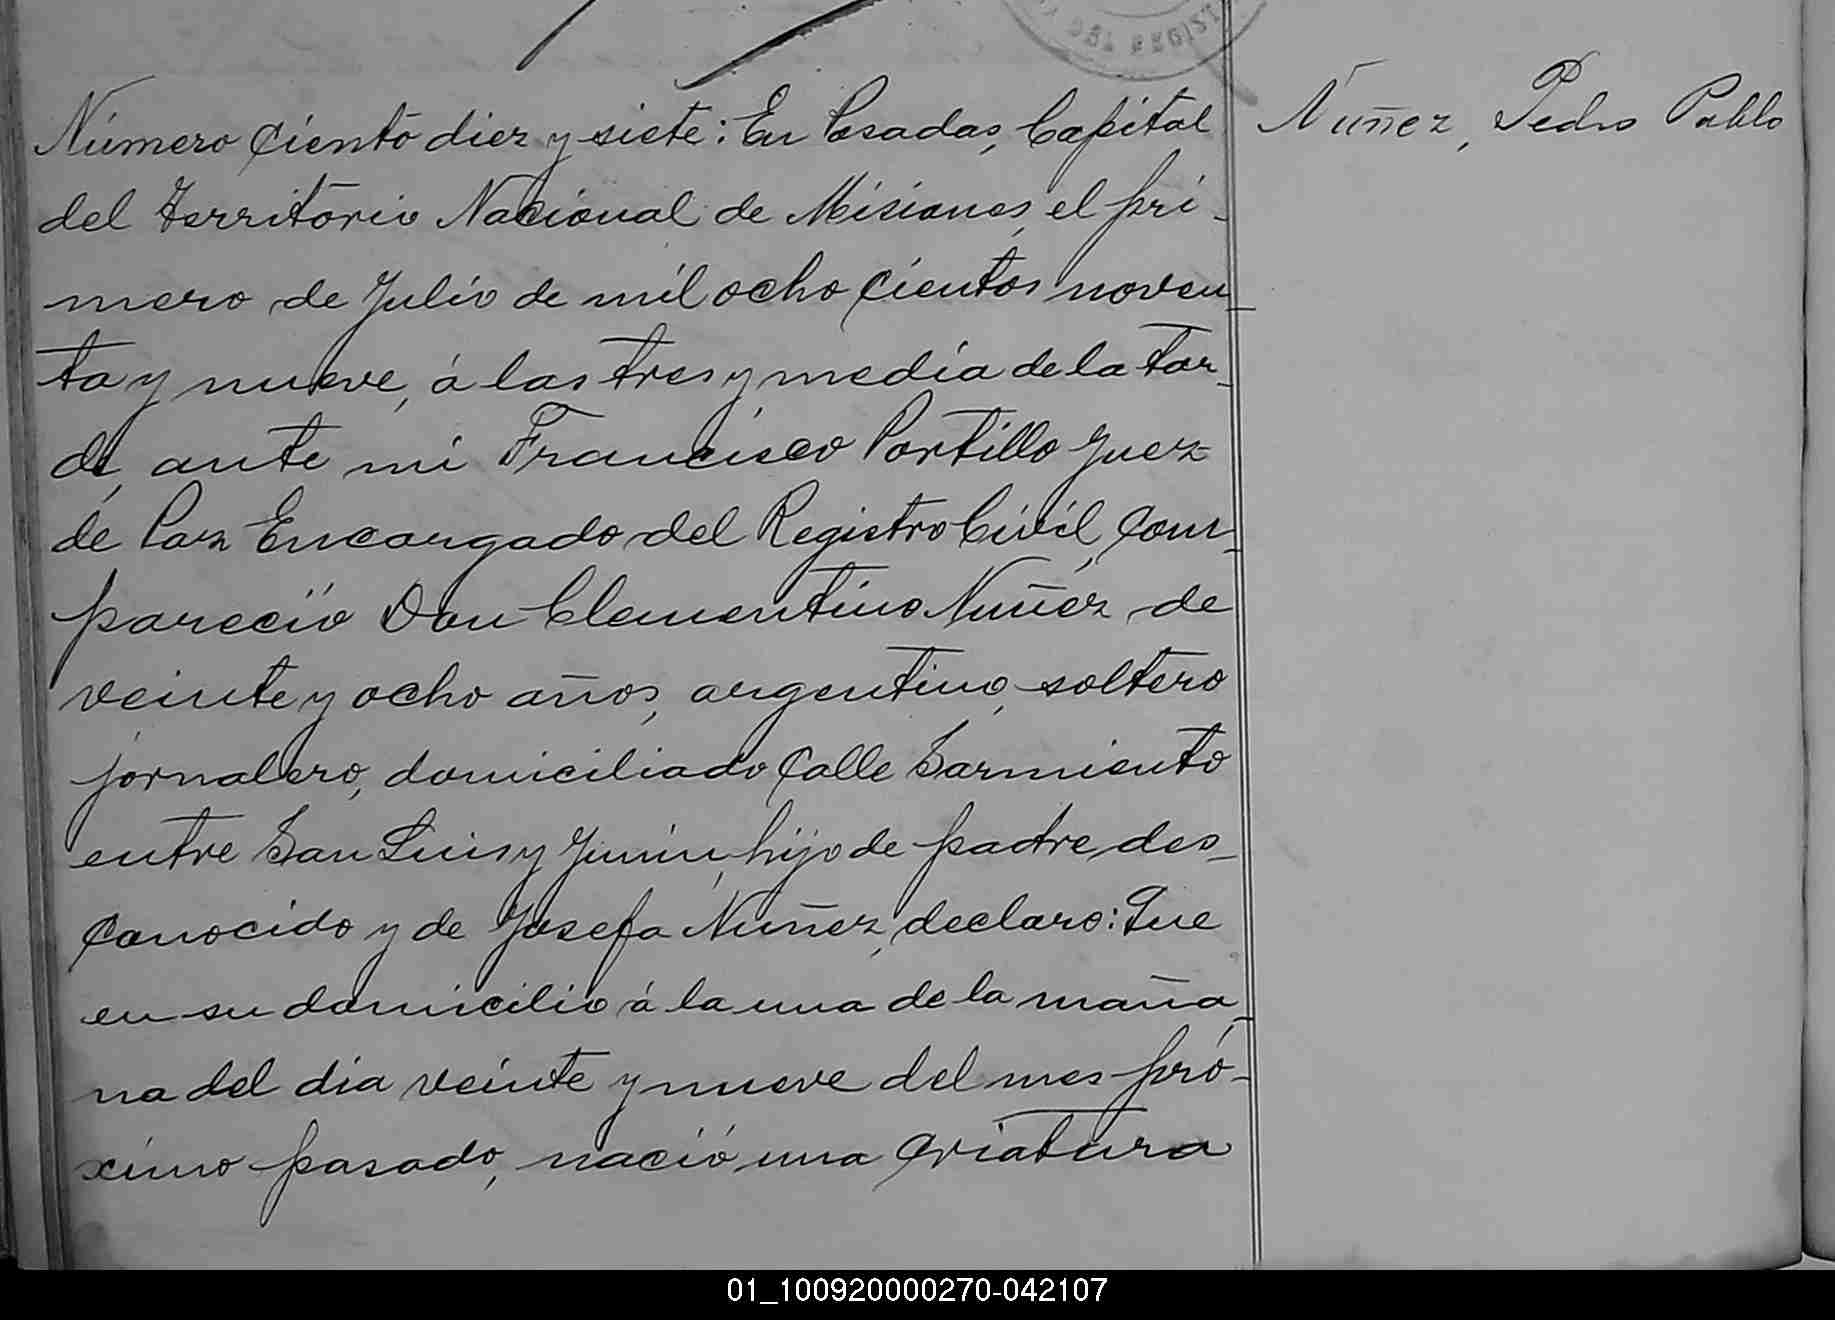 DEL REGIST
Número ciento diez y siete: En Posadas, Capital
Nuñez, Pedro Pablo
del Territorio Nacional de Misiones, el pri-
mero de Julio de mil ocho cientos noven-
ta y nueve, á las tres y media de la tar-
de, ante mi Francisco Portillo Juez
de Paz Encargado del Registro Civil, com-
pareció Don Clementino Nuñez de
veinte y ocho años, argentino, soltero
jornalero, domiciliado calle Sarmiento
entre San Luis y Junin, hijo de padre des-
conocido y de Josefa Nuñez, declaro: Que
en su domicilio á la una de la maña-
na del dia veinte y nueve del mes pró-
ximo pasado, nació una criatura
01_100920000270-042107